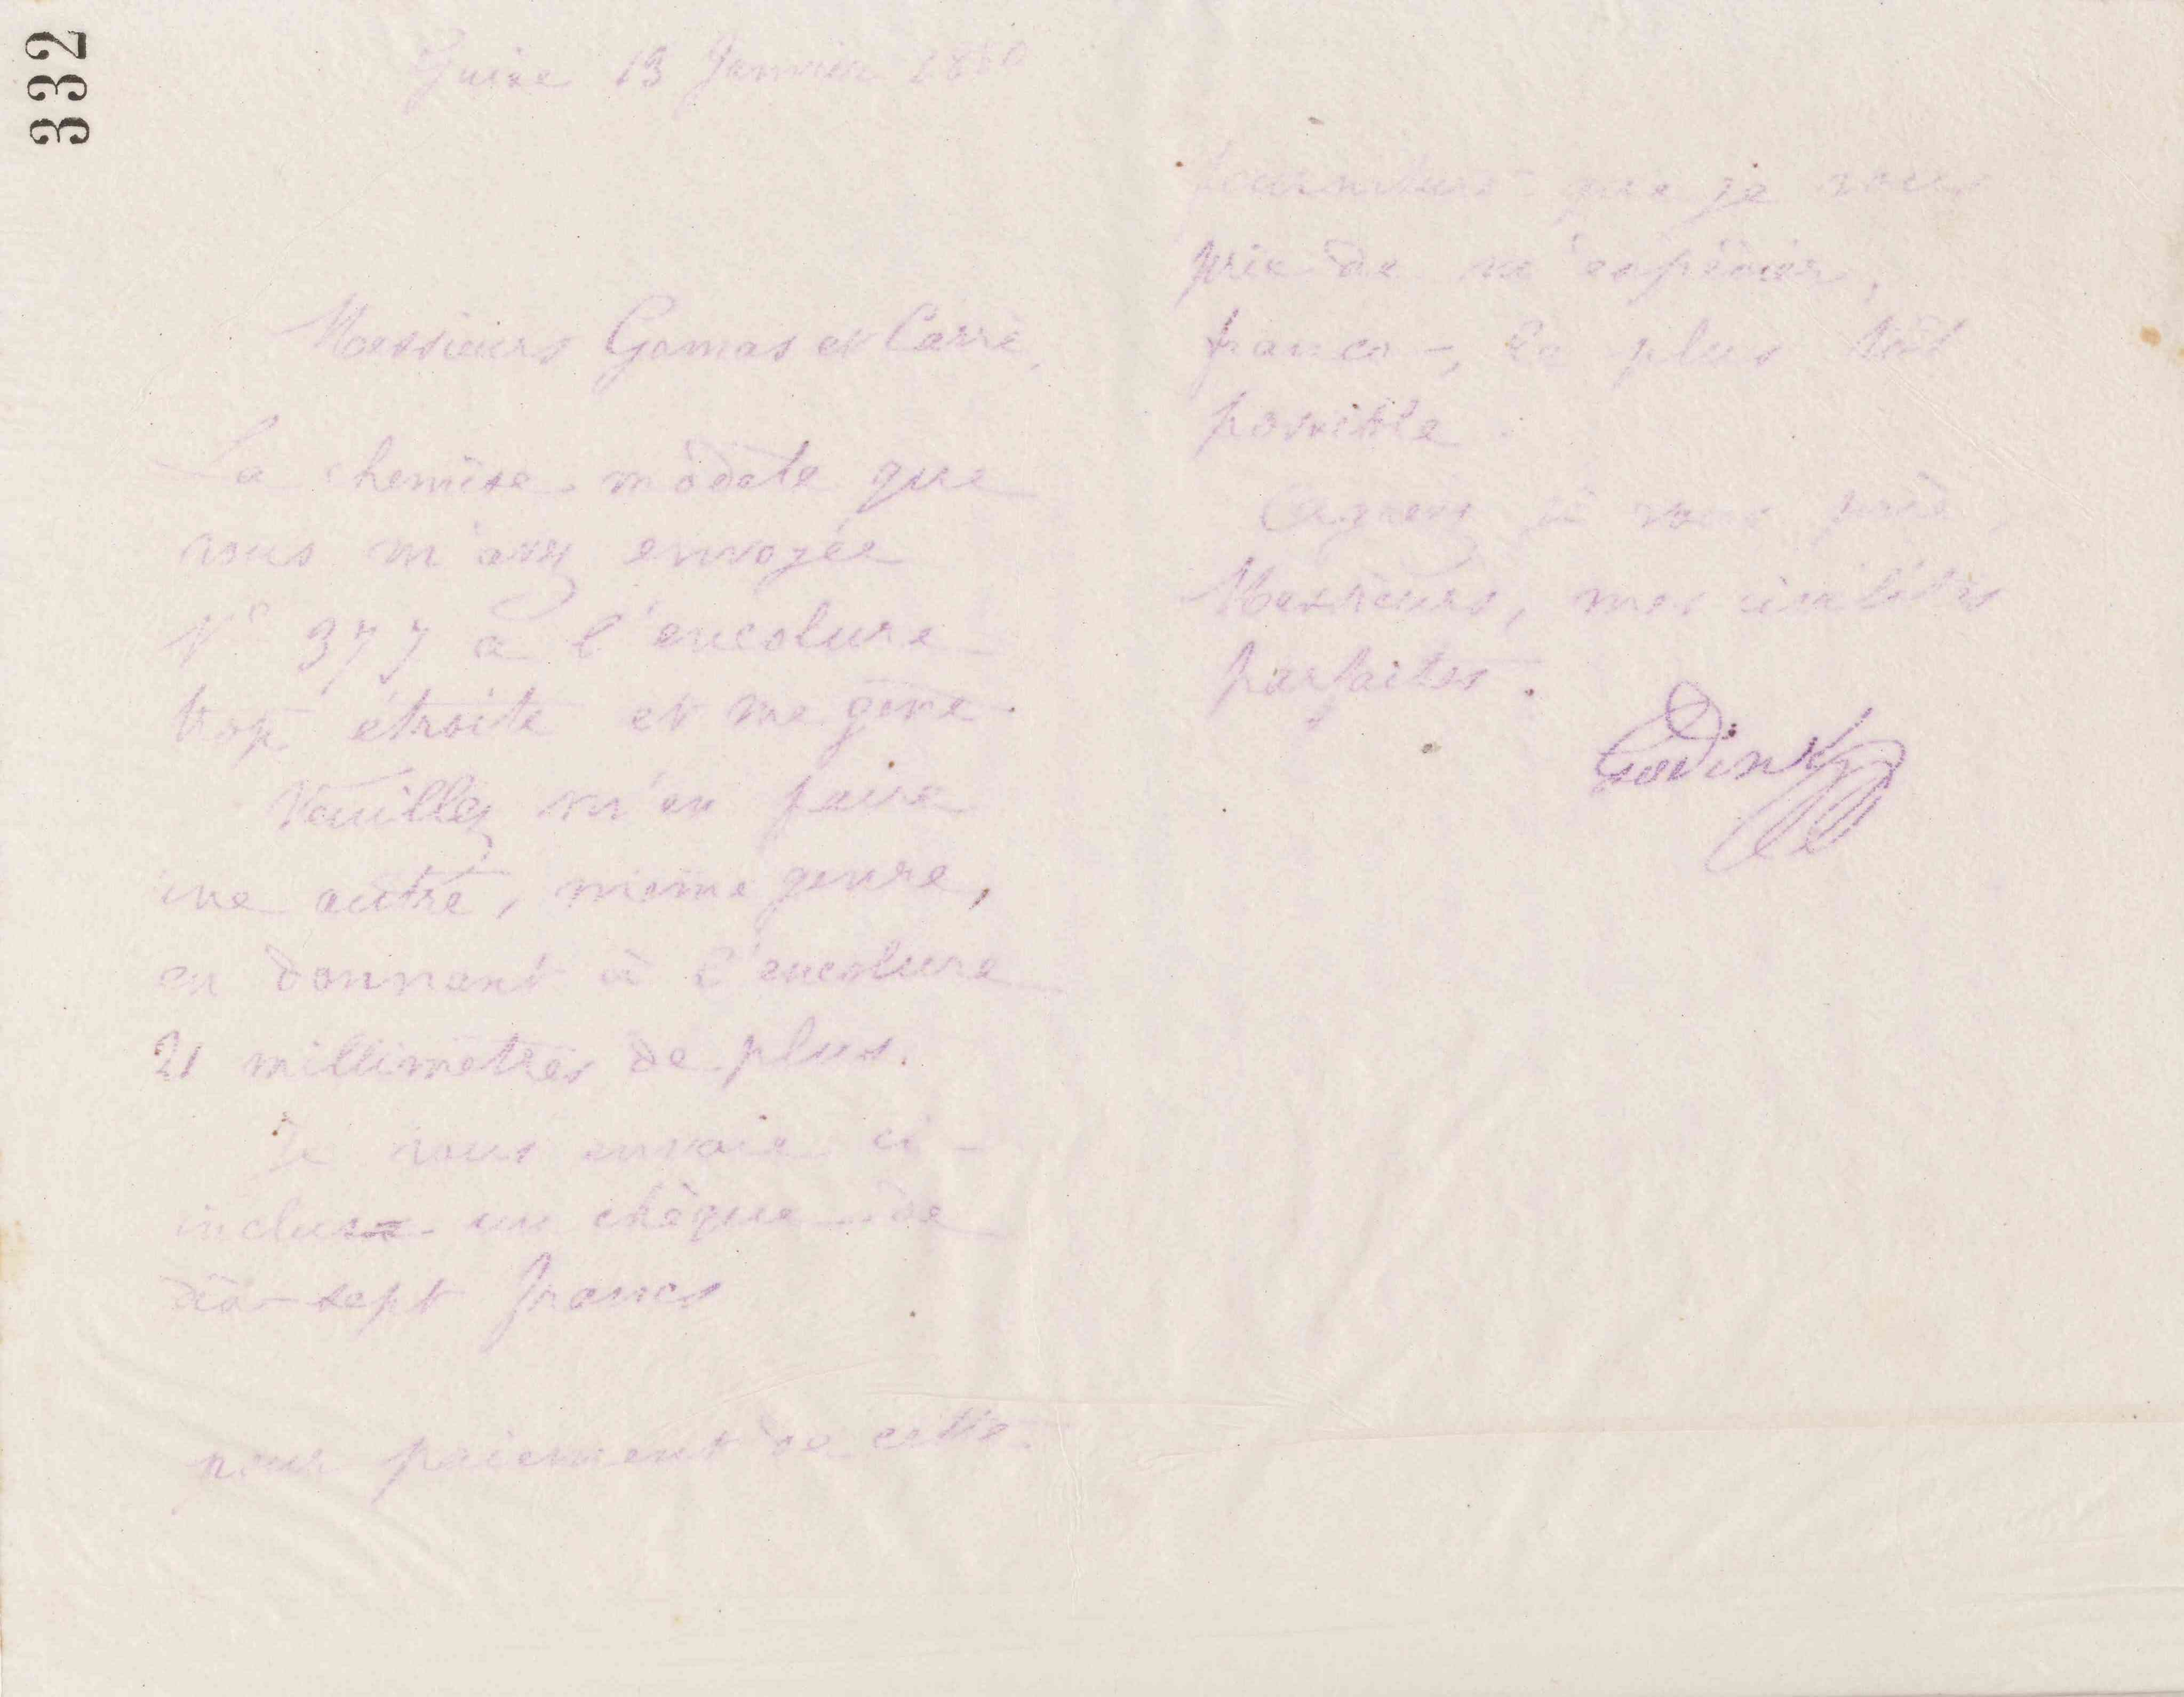 332
Guise 13 Janvier 1880
Messieurs Gamas et Carré,
La chemise modèle que
vous m'avez envoyée
N° 377 a l'encolure
trop étroite et me gêne.
Veuillez m'en faire
une autre, même genre,
en donnant à l'encolure
21 millimètres de plus.
Je vous envoie ci-
inclus un chèque de
dix-sept francs
pour paiement de cette
fourniture que je vous
prie de m'expédier,
franco, le plus tôt
possible.
Agréez je vous prie,
Messieurs, mes civilités
parfaites.
Godin